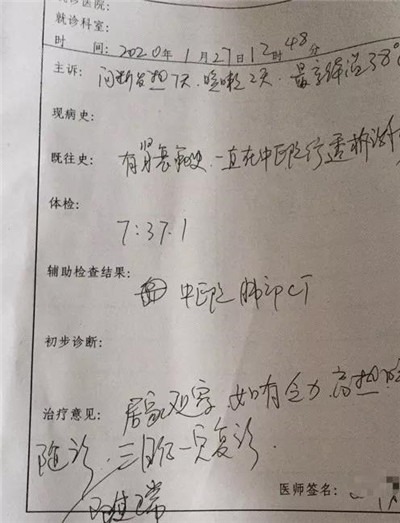 就诊医院:
就诊科室:
时 间: 2020年1月27日12时48分
主诉: 间断发热7天.咳嗽2天.最高体温38°
现病史:
既往史: 有肾衰病史.一直在中医院行透析治疗
体检:
T:37.1
辅助检查结果:
中医院肺部CT
初步诊断:
治疗意见: 居家观察.如有乏力.高热
随诊.三日后复诊.
医师签名: